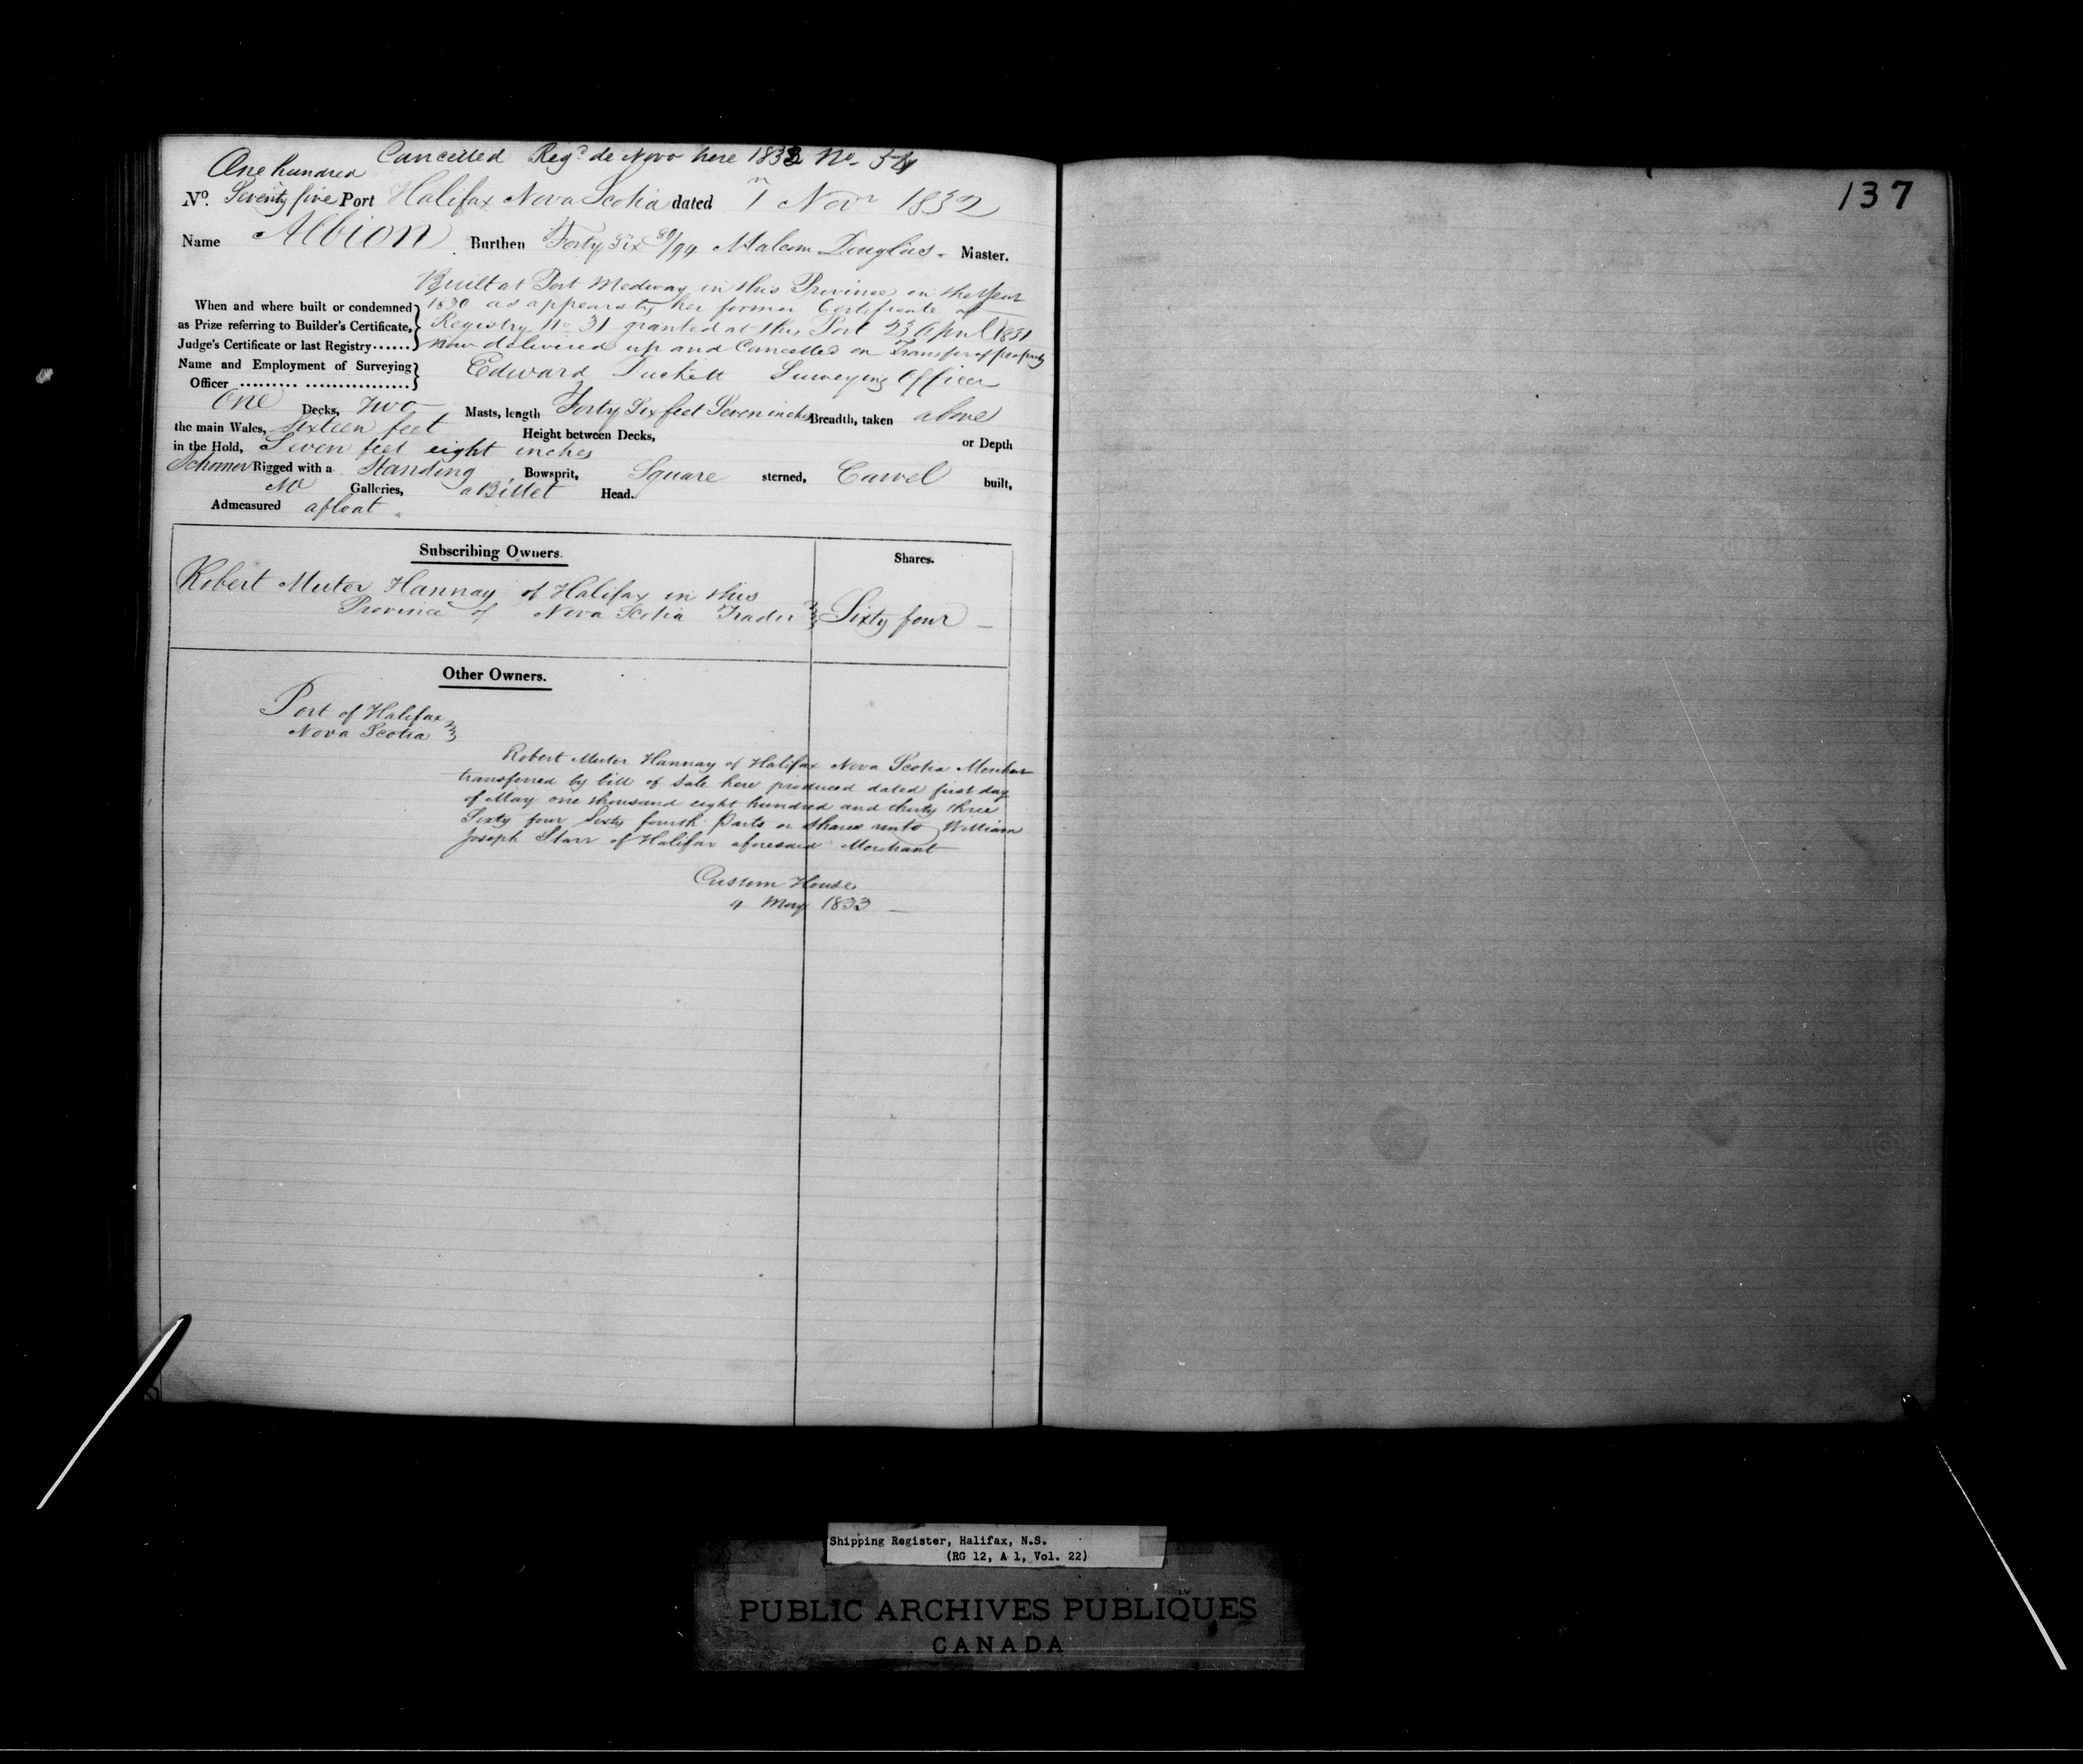 Cancelled Regd de Novo here 1833 No. 54
One hundred
No. Seventy five Port Halifax Nova Scotia dated 7 Novr 1832
Name Albion Burthen Forty Six 80/94 Malcom Douglas. Master.
Built at Port Medway in this Province in the Year
When and where built or condemned 1830 as appears by her former Certificate of
as Prize referring to Builder's Certificate, Registry No 31 granted at this Port 23 April 1831
Judge's Certificate or last Registry...... now delivered up and Cancelled on Transfer of property
Name and Employment of Surveying
Officer ......... ................. Edward Duckett Surveying Officer
One Decks, Two Masts, length Forty Six feet Seven inches Breadth, taken above
the main Wales, Sixteen feet Height between Decks, or Depth
in the Hold, Seven feet eight inches
Schooner Rigged with a Standing Bowsprit, Square sterned, Carvel built,
No Galleries, a Billet Head.
Admeasured afloat
Subscribing Owners. Shares.
Robert Muter Hannay of Halifax in this
Province of Nova Scotia Trader Sixty four
Other Owners.
Port of Halifax
Nova Scotia
Robert Muter Hannay of Halifax Nova Scotia Merchant
transferred by bill of Sale here produced dated first day
of May one thousand eight hundred and thirty three
Sixty four Sixty fourth Parts or Shares unto William
Joseph Starr of Halifax aforesaid Merchant
Custom House
4 May 1833
137
Shipping Register, Halifax, N.S.
(RG 12, A 1, Vol. 22)
PUBLIC ARCHIVES PUBLIQUES
CANADA